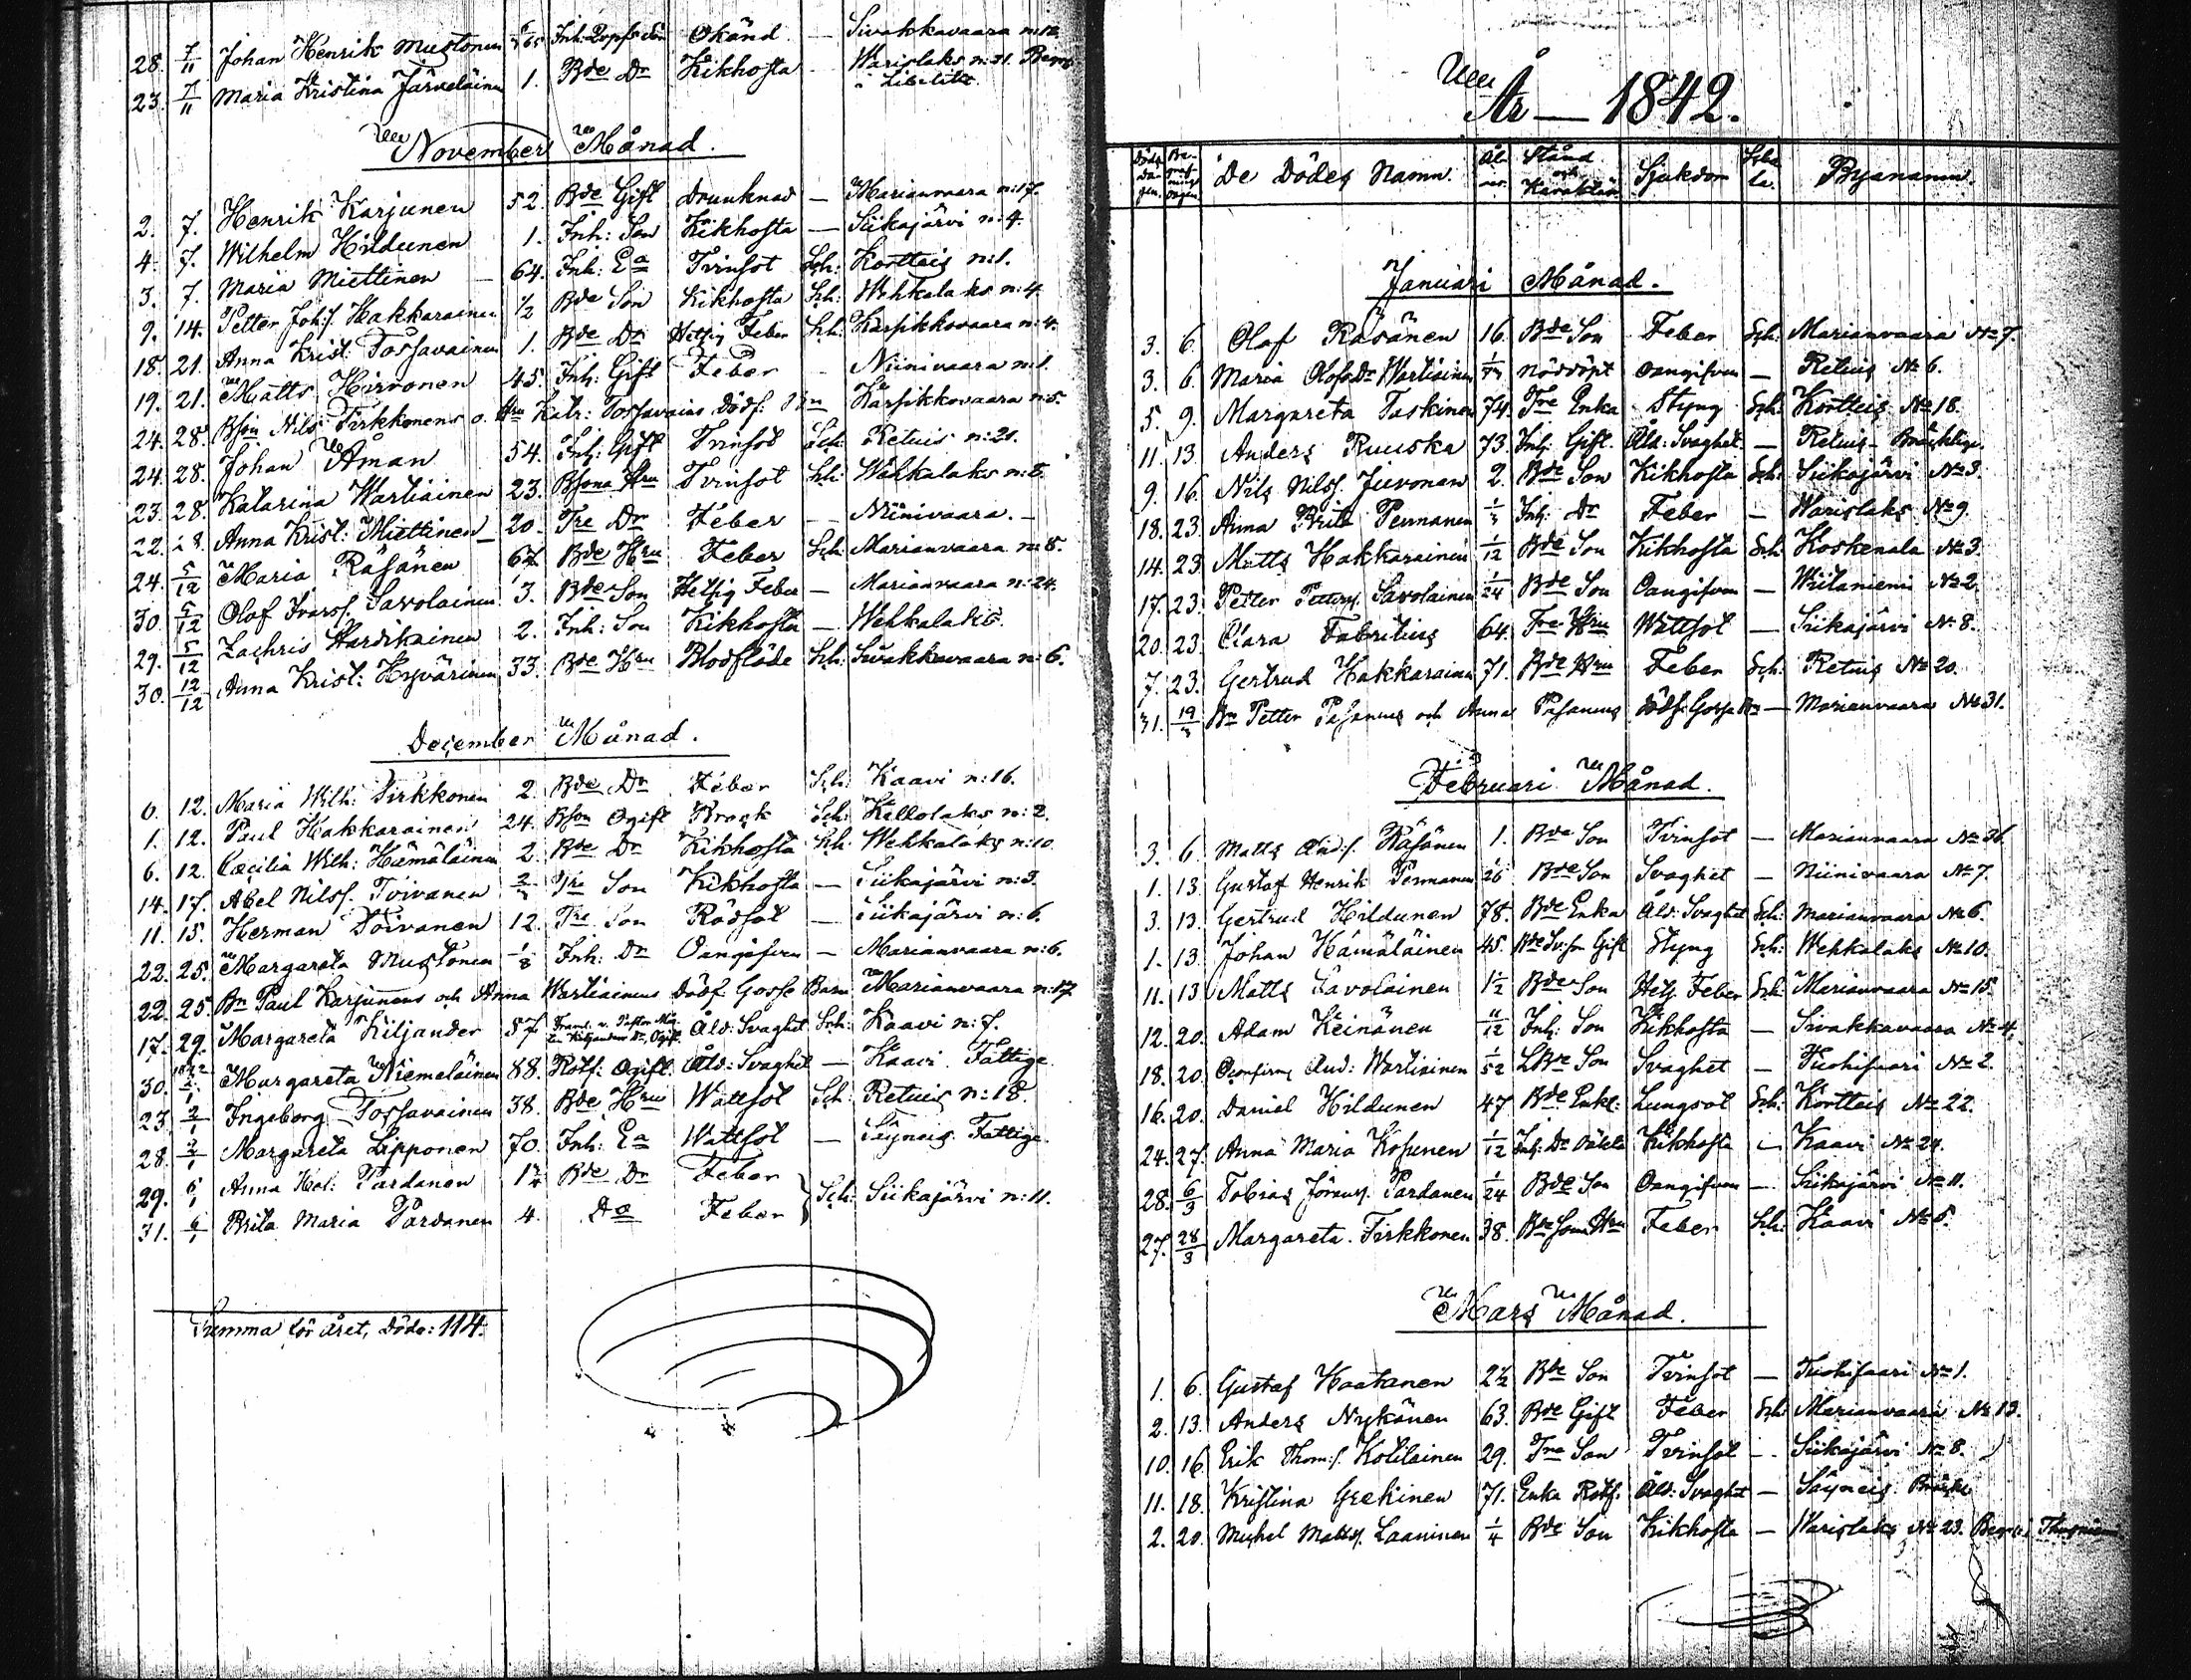 28. 7/11 Johan Henrik Mustonen Inh: Okänd. — Sivakkavaara n:12.
23. 7/11 Maria Kristina Järveläinen 1. Bde Dr Kikhosta - Warislaks n:31.
i Libelits.
November Månad.
2. 7. Henrik Karjunen 52. Bde Gift Drunknad — Marianvaara n:17.
4. 7. Wilhelm Hildunen 1. Inh: Son Kikhosta — Siikajärvi n:4.
3. 7. Maria Miettinen — 64. Inh: Ea Tvinsot Sch: Kortteis n:1.
9. 14. Petter Joh:s. Hakkarainen 1/2 Bde Son Kikhosta Sch: Wehkalaks n:4.
18. 21. Anna Krist: Tossavainen 1. Bde Dr Hetsig Feber Sch: Karsikkovaara n:4.
19. 21. Matts Hirvonen 45. Inh: Gift Feber - Niinivaara n:1.
24. 28. Bson Nils Pirkkonens o. Hru Katr: Tossavains Dödf: Bn Karsikkovaara n:5.
24. 28. Johan Åman 54. Inh: Gift Tvinsot Sch: Retuis n:21.
23. 28. Katarina Wartiainen 23. Bsons Hru Tvinsot Sch: Wehkalaks n:5.
22. 28. Anna Krist: Miettinen 20. Tre Dr Feber — Niinivaara. —
24. 5/12 Maria Räsänen 67. Bde Hru Feber Sch: Marianvaara n:5.
30. 5/12 Olof Ivarss. Savolainen 3. Bde Son Hetsig Feber — Marianvaara n:24.
29. 5/12 Zachris Hardikainen 2. Inh: Son Kikhosta — Wehkalaks.
30. 12/12 Anna Krist: Hyvärinen 33. Bde Hru Blodflöde Sch: Sivakkavaara n:6.
December Månad.
6. 12. Maria Wilh: Pirkkonen 2. Bde Dr Feber Sch: Kaavi n:16.
1. 12. Paul Hakkarainen 24. Bson Ogift Brock Sch: Kellolaks n:2.
6. 12. Cæcilia Wilh: Hämäläinen 2. Bde Dr Kikhosta Sch: Wehkalaks n:10.
14. 17. Abel Nilss. Toivanen Tre Son Kikhosta — Siikajärvi n:3.
11. 15. Herman Toivanen 12. Tre Son Rödsot — Siikajärvi n:6.
22. 25. Margareta Mustonen 1/8 Inh: Dr Oangifven — Marianvaara n:6.
22. 25. Bn Paul Karjunens och Anna Wartiainens Dödf: Gosse Barn Marianvaara n:17.
17. 29. Margareta Kiljander 57 Ogift. Åld: Svaghet Sch: Kaavi n:7.
30. 1842 2/1 Margareta Niemeläinen 88. Rotf: Ogift. Åld: Svaghet — Kaavi Fattige
23. 2/1 Ingeborg Tossavainen 38. Bde Hru Wattsot Sch: Retuis n:18.
28. 2/1 Margareta Lipponen 70. Inh: Ea Wattsot — Säyneis Fattige
29. 6/1 Anna Hel: Pardanen Bde Dr Feber
31. 6/1 Brita Maria Pardanen 4. Do Feber Sch: Siikajärvi n:11.
Summa för året, Döde: 114.
År — 1842.
Döds Dagen. Begrafningsdagen. De Dödes Namn. Ålder. Stånd och Karaktär Sjukdom Byanamn.
Januari Månad.
3. 6. Olof Räsänen 16. Bde Son Feber Sch: Marianvaara No 7.
3. 6. Maria OlofsDr Wartiainen nöddöpt Oangifven — Retuis No 6.
5. 9. Margareta Taskinen 74. Tre Enka Styng Sch: Kortteis No 18.
11. 13. Anders Ruuska 73. Inh: Gift. Åld: Svaghet — Retuis
9. 16. Nils Nilss. Juvonen 2. Bde Son Kikhosta Sch: Siikajärvi No 3.
18. 23. Anna Brita Pennanen Inh: Dr Feber — Warislaks No 9.
14. 23. Matts Hakkarainen 1/12 Bde Son Kikhosta Sch: Koskenala No 3.
17. 23. Petter Petterss. Savolainen 1/24 Bde Son Oangifven — Writaniemi No 2.
20. 23. Clara Fabritius 64. Hru Wattsot — Siikajärvi No 8.
7. 23. Gertrud Hakkarainen 71. Bde Hru Feber Sch: Retuis No 20.
31. Bn Petter Pasanens och Anna Pasanens dödf: Gosse Bn — Marianvaara No 31.
Februari Månad.
3. 6. Matts And:s. Räsänen 1. Bde Son Tvinsot — Marianvaara No 36.
1. 13. Gustaf Henrik Pennanen Bde Son Svaghet — Niinivaara No 7.
3. 13. Gertrud Hildunen 78. Bde Enka Åld: Svaghet Sch: Marianvaara No 6.
1. 13. Johan Hämäläinen 45. Gift Styng Sch: Wehkalaks No 10.
11. 13. Matts Savolainen 1/2 Bde Son Hets. Feber Sch: Marianvaara No 15.
12. 20. Adam Keinänen 11/12 Inh: Son Kikhosta — Sivakkavaara No 4.
18. 20. And: Wartiainen 1/52 Son Svaghet — Tuohisaari No 2.
16. 20. Daniel Hildunen 47. Bde Enkl: Lungsot Sch: Kortteis No 22.
24. 27. Anna Maria Kosunen 1/12 Inh: Dr Oäkta Kikhosta — Kaavi No 24.
28. 6/3 Tobias Jöranss. Pardanen 1/24 Bde Son Oangifven — Siikajärvi No 11.
27. 28/3 Margareta Pirkkonen 38. Bde Sons Hru Feber Sch: Kaavi No 5.
Mars Månad.
1. 6. Gustaf Kaatanen 2 1/2 Bde Son Tvinsot — Tuohisaari No 1.
2. 13. Anders Nykänen 63. Bde Gift Feber Sch: Marianvaara No 13.
10. 16. Erik Thom:s. Kotilainen 29. Tre Son Tvinsot - Siikajärvi No 8.
11. 18. Kristina Grekinen 71. Enka Rotf. Åld: Svaghet — Säyneis
2. 20. Michel Matts. Laaninen 1/4 Bde Son Kikhosta — Warislaks No 23.